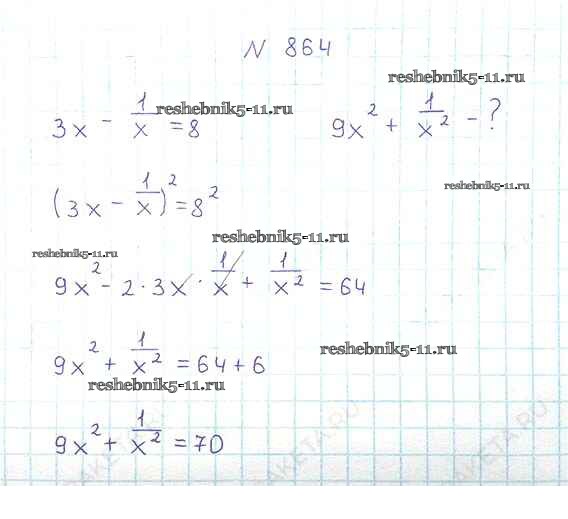 N 864
reshebnik5-11.ru
3x - 1/x = 8 reshebnik5-11.ru
9x² + 1/x² - ?
(3x - 1/x)² = 8²
reshebnik5-11.ru
reshebnik5-11.ru
reshebnik5-11.ru
9x² - 2 · 3x · 1/x + 1/x² = 64
9x² + 1/x² = 64 + 6
reshebnik5-11.ru
reshebnik5-11.ru
9x² + 1/x² = 70